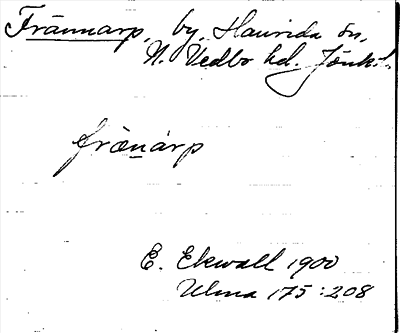 Frännarp, by, Haurida sn,
N. Vedbo hd. Jönk. l.
frænàrp
E. Ekwall 1900
Ulma 175:208